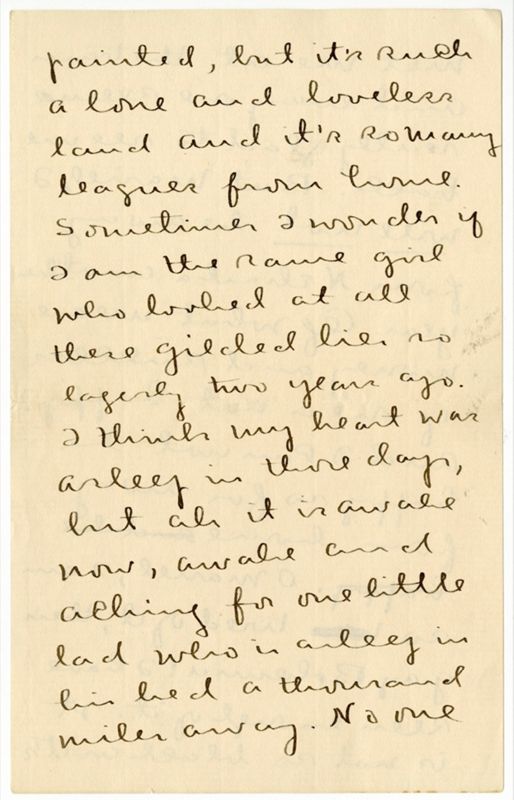 painted, but it's such
a lone and loveless
land and it's so many
leagues from home.
Sometimes I wonder if
I am the same girl
who looked at all
these gilded lies so
eagerly two years ago.
I think my heart was
asleep in those days,
but ah it is awake
now, awake and
aching for one little
lad who is asleep in
his bed a thousand
miles away. No one